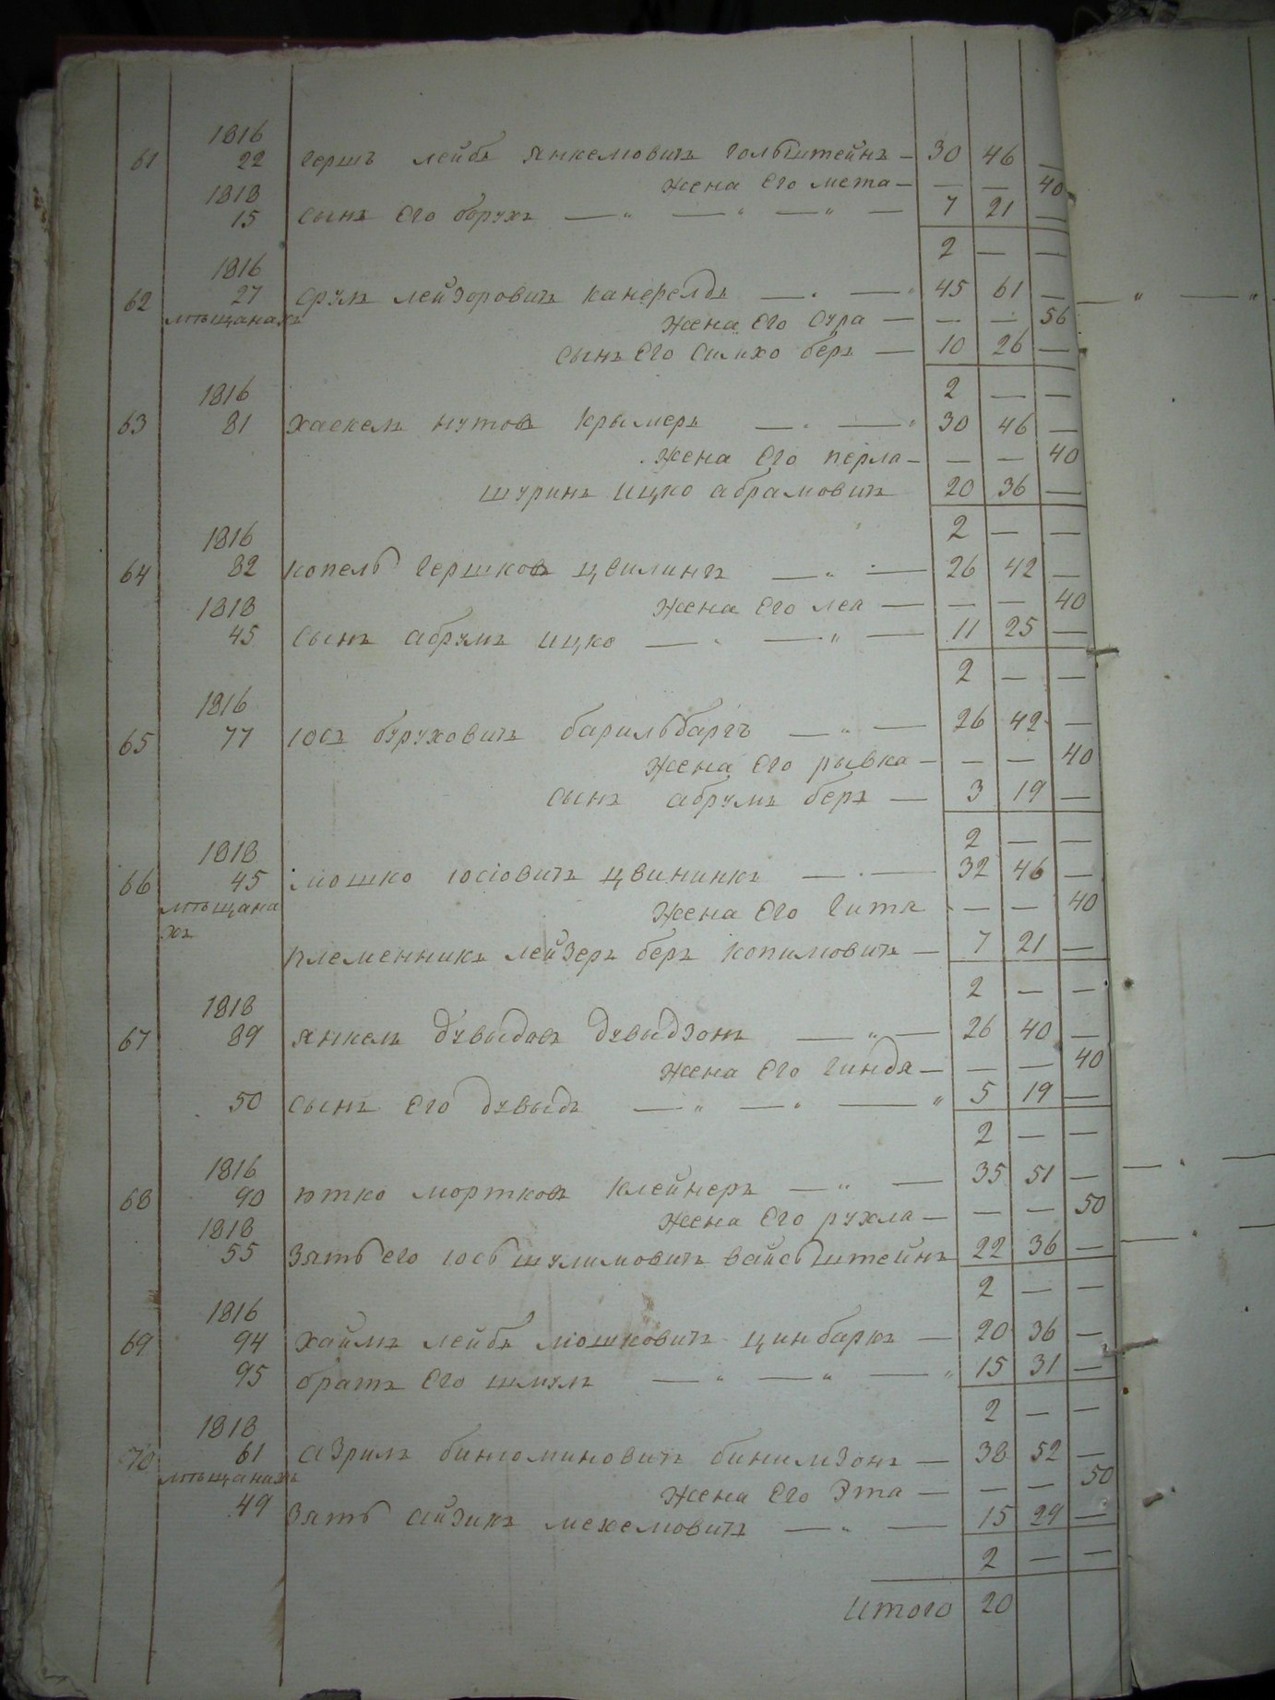 1816
61 22 Гершъ лейбъ Янкелювичъ Гольштейнъ — 30 46 —
жена Его мета — — — 40
1818
15 сынъ Его борухъ — " — " — " — 7 21 —
2 — —
1816
62 27 Срулъ лейзоровичъ — " — " 45 61 —
мѣщанахъ жена Его Сура — — — 56
сынъ Его Симхо беръ — 10 26 —
2 — —
1816
63 81 хаскель нутовъ Крымеръ — " — " 30 46 —
жена Его перла — — — 40
шуринъ ицко абрамовичъ 20 36 —
2 — —
1816
64 82 копель Гершковъ цвилингъ — " — 26 42 —
жена Его леа — — — 40
1818
45 сынъ абрумъ ицко — " — " — 11 25 —
2 — —
1816
65 77 юсь буруховичъ барильбаргъ — " — 26 42 —
жена Его рывка — — — 40
сынъ абрумъ беръ — 3 19 —
2 — —
1818
66 45 мошко юсіовичъ цвининкъ — " — 32 46 —
мѣщана жена Его Гитя — — 40
хъ
племенникъ лейзеръ беръ копилювичъ — 7 21 —
2 — —
1818
67 89 янкель дувыдовъ дувыдзонъ — " — 26 40 —
жена Его Гиндя — — — 40
50 сынъ Его дувыдъ — " — " — " 5 19 —
2 — —
1816
68 90 ютко мортковъ клейнеръ — " — 35 51 —
жена Его рухла — — — 50
1818
55 Зять его юсь шулимовичъ вайсьштейнъ 22 36 —
2 — —
1816
69 94 хаимъ лейбъ мошковичъ цинбаркъ — 20 36 —
95 братъ Его шмулъ — " — " — " 15 31 —
2 — —
1818
70 61 Азрилъ бинюминовичъ бинимзонъ — 38 52 —
мѣщанахъ жена Его Эта — — — 50
49 Зять айзикъ мехелювичъ — " — 15 29 —
2 — —
Итого 20